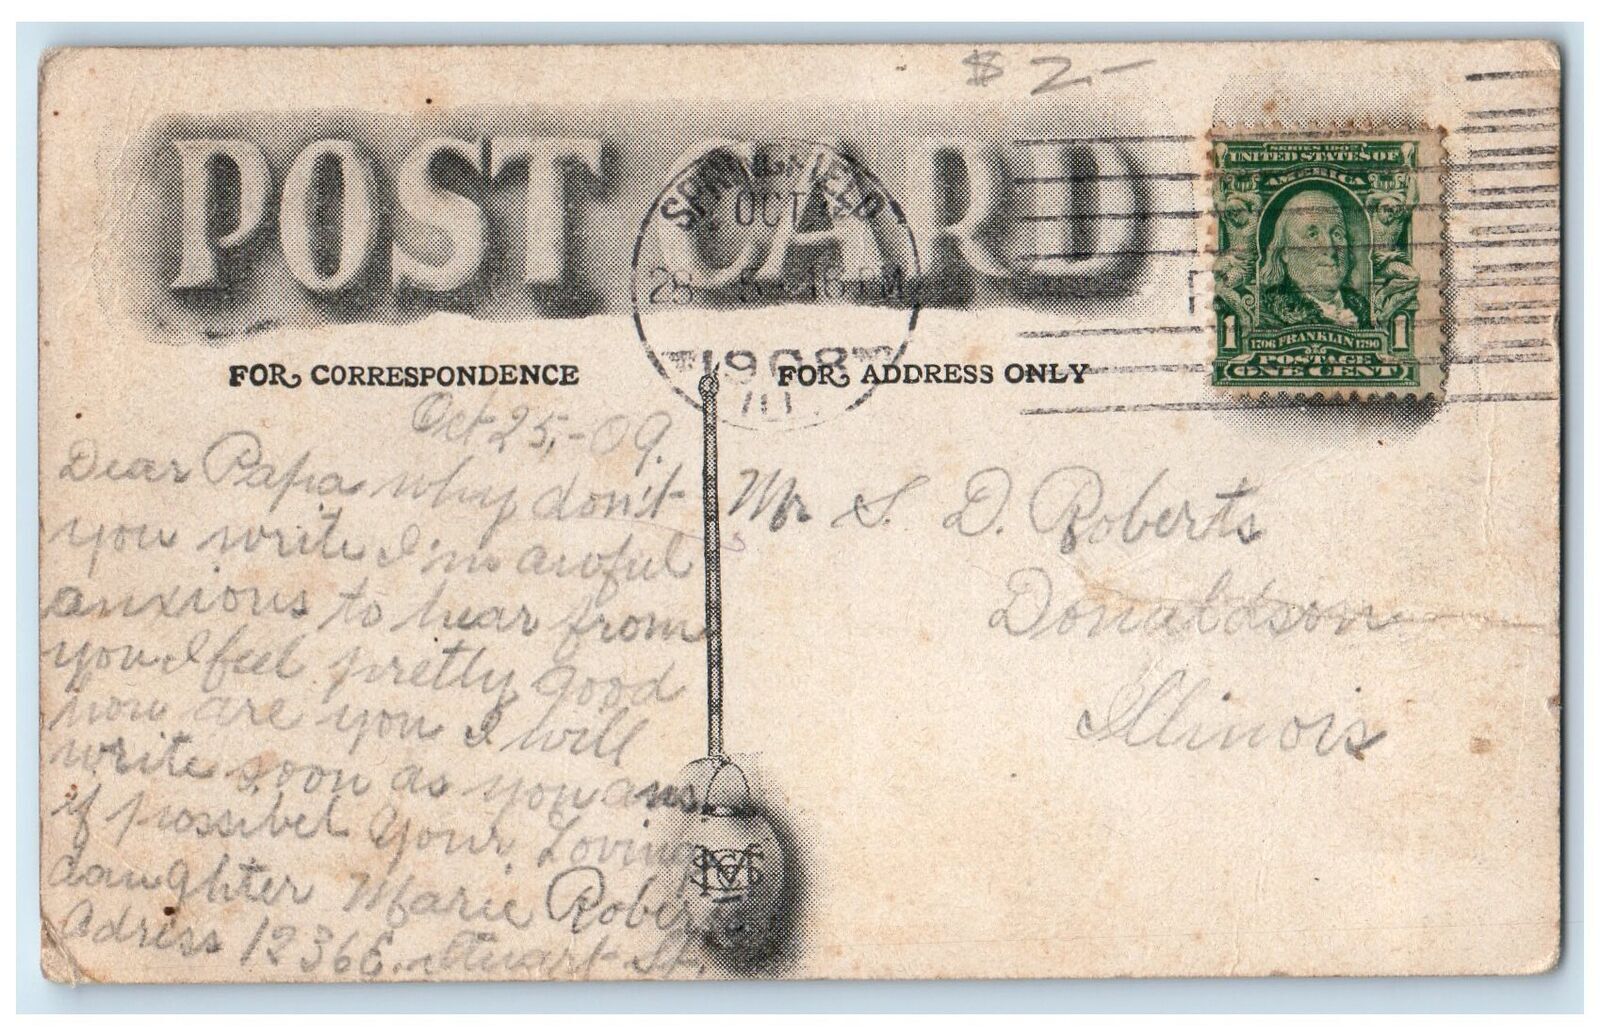 $ 2.-
POST CARD
SPRINGFIELD
OCT
28 5-16 PM
1908
ILL.
SERIES 1902
UNITED STATES OF
AMERICA
1 1706 FRANKLIN 1790 1
POSTAGE
ONE CENT
FOR CORRESPONDENCE
FOR ADDRESS ONLY
Oct 25,-09.
Dear Papa why don't
you write I'm awful
anxious to hear from
you I feel pretty good
now are you I will
write soon as you ans.
if possibel Your Loving
daughter Marie Roberts
Adress 1236 E. Stuart St.
Mr S. D. Roberts
Donaldson
Illinois